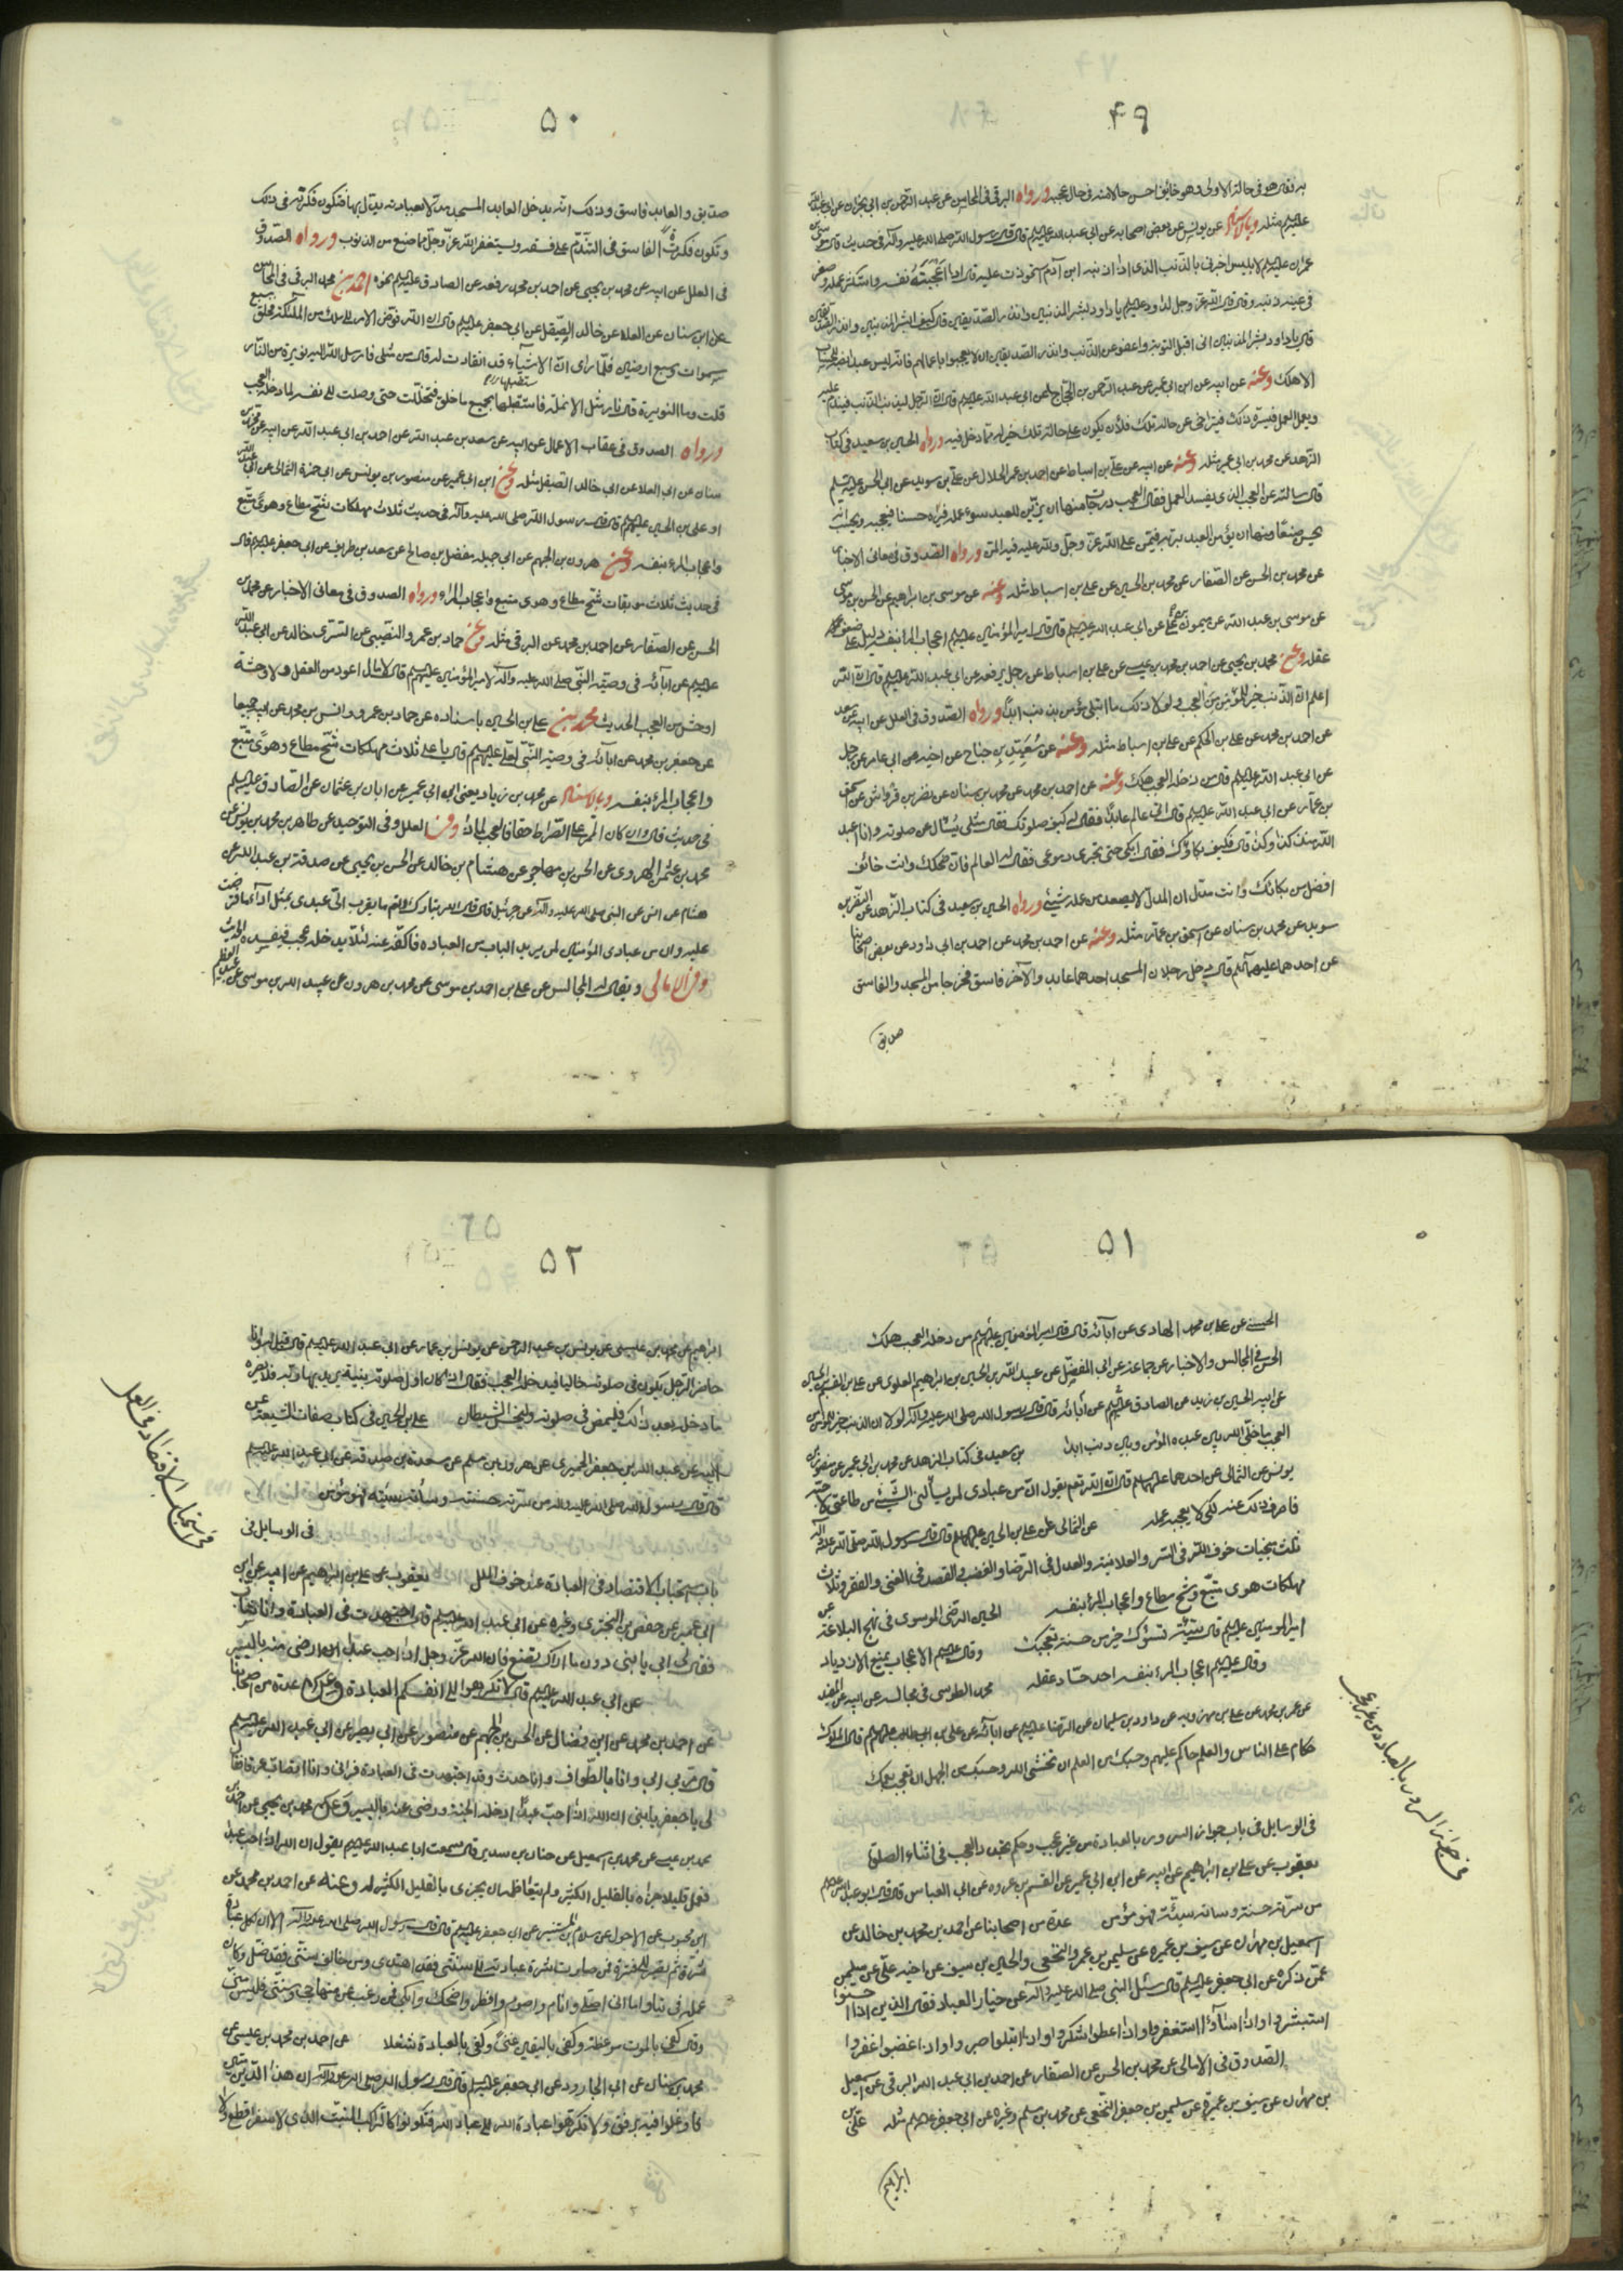 ۴۹
به فقال هو في حاله الاولى وهو خائف احسن حالا منه في حال عجبه ورواه البرقي في المحاسن عن عبد الرحمن بن ابي نجران عن
مثله وبالاسناد عن يونس عن بعض اصحابه عن ابي عبد الله عليه السلام قال قال رسول الله صلى الله عليه وآله في حديث قال موسى
عمران عليه السلام لابليس اخبرني بالذنب الذي اذا اذنبه ابن آدم استحوذت عليه قال اذا اعجبته نفسه واستكثر عمله وصغر
في عينه ذنبه وقال قال الله عز وجل لداود عليه السلام يا داود بشر المذنبين وانذر الصديقين قال كيف ابشر المذنبين وانذر الصديقين
قال يا داود بشر المذنبين اني اقبل التوبة واعفو عن الذنب وانذر الصديقين ان لا يعجبوا باعمالهم فانه ليس عبد انصبه للحساب
الا هلك وعنه عن ابيه عن ابن ابي عمير عن عبد الرحمن بن الحجاج عن ابي عبد الله عليه السلام قال ان الرجل ليذنب الذنب فيندم عليه
ويعمل العمل فيسره ذلك فيتراخى عن حاله تلك فلأن يكون على حاله تلك خير له مما دخل فيه ورواه الحسين بن سعيد في كتاب
الزهد عن محمد بن ابي عمير مثله وعنه عن ابيه عن علي بن اسباط عن احمد بن عمر الحلال عن علي بن سويد عن ابي الحسن عليه السلام
قال سالته عن العجب الذي يفسد العمل فقال العجب درجات منها ان يزين للعبد سوء عمله فيراه حسنا فيعجبه ويحسب انه
يحسن صنعا ومنها ان يؤمن العبد بربه فيمن على الله عز وجل ولله عليه فيه المن ورواه الصدوق في معاني الاخبار
عن محمد بن الحسن عن الصفار عن محمد بن الحسين عن علي بن اسباط مثله وعنه عن موسى بن ابراهيم عن الحسن بن موسى
عن موسى بن عبد الله عن ميمون بن علي عن ابي عبد الله عليه السلام قال قال امير المؤمنين عليه السلام اعجاب المرء بنفسه دليل على ضعف
عقله وعن محمد بن يحيى عن احمد بن محمد بن عيسى عن علي بن اسباط عن رجل يرفعه عن ابي عبد الله عليه السلام قال ان الله
اعلم ان الذنب خير للمؤمن من العجب ولولا ذلك ما ابتلي مؤمن بذنب ابدا ورواه الصدوق في العلل عن ابيه عن سعد
عن احمد بن محمد عن علي بن الحكم عن علي بن اسباط مثله وعنه عن سعيد بن جناح عن اخيه عن ابي عامر عن رجل
عن ابي عبد الله عليه السلام قال من دخله العجب هلك وعنه عن احمد بن محمد عن محمد بن سنان عن نضر بن قرواش عن اسحق
بن عمار عن ابي عبد الله عليه السلام قال اتى عالم عابدا فقال له كيف صلوتك فقال مثلي يسأل عن صلوته وانا اعبد
الله منذ كذا وكذا قال فكيف بكاؤك فقال ابكي حتى تجري دموعي فقال له العالم فان ضحكك وانت خائف
افضل من بكائك وانت مدل ان المدل لا يصعد من عمله شيء ورواه الحسين بن سعيد في كتاب الزهد عن النضر بن
سويد عن محمد بن سنان عن اسحق بن عمار مثله وعنه عن احمد بن محمد عن احمد بن ابي داود عن بعض اصحابنا
عن احدهما عليهما السلام قال دخل رجلان المسجد احدهما عابد والآخر فاسق فخرجا من المسجد والفاسق
صديق
۵۰
صديق والعابد فاسق وذلك انه يدخل العابد المسجد مدلا بعبادته يدل بها فتكون فكرته في ذلك
وتكون فكرة الفاسق في التندم على فسقه ويستغفر الله عز وجل مما صنع من الذنوب ورواه الصدوق
في العلل عن ابيه عن محمد بن يحيى عن احمد بن محمد رفعه عن الصادق عليه السلام نحوه احمد بن محمد البرقي في المحاسن
عن ابن سنان عن العلا عن خالد الصيقل عن ابي جعفر عليه السلام قال ان الله فوض الامر الى ملك من الملئكة فخلق سبع
سموات وسبع ارضين فلما راى ان الاشياء قد انقادت له قال من مثلي فارسل الله اليه نويرة من النار
قلت وما النويرة قال نار مثل الانملة فاستقبلها بجميع ما خلق فتخللت حتى وصلت الى نفسه لما دخله العجب
ورواه الصدوق في عقاب الاعمال عن ابيه عن سعد بن عبد الله عن احمد بن ابي عبد الله عن ابيه عن محمد بن
سنان عن ابي العلا عن ابي خالد الصيقل مثله وعن ابن ابي عمير عن منصور بن يونس عن ابي حمزة الثمالي عن ابي عبد الله
او علي بن الحسين عليهم السلام قال قال رسول الله صلى الله عليه وآله في حديث ثلاث مهلكات شح مطاع وهوى متبع
واعجاب المرء بنفسه وعن هرون بن الجهم عن ابي جميله مفضل بن صالح عن سعد بن طريف عن ابي جعفر عليه السلام قال
في حديث ثلاث موبقات شح مطاع وهوى متبع واعجاب المرء ورواه الصدوق في معاني الاخبار عن محمد بن
الحسن عن الصفار عن احمد بن محمد عن البرقي مثله وعن حماد بن عمرو النصيبي عن السري خالد عن ابي عبد الله
عليه السلام عن آبائه في وصية النبي صلى الله عليه وآله لامير المؤمنين عليهم السلام قال لا مال اعود من العقل ولا وحدة
اوحش من العجب الحديث محمد بن علي بن الحسين باسناده عن حماد بن عمرو وانس بن محمد عن ابيه جميعا
عن جعفر بن محمد عن آبائه في وصية النبي لعلي عليهم السلام قال يا علي ثلاث مهلكات شح مطاع وهوى متبع
واعجاب المرء بنفسه وبالاسناد عن محمد بن زياد يعني ابن ابي عمير عن ابان بن عثمان عن الصادق عليه السلام
في حديث قال وان كان الممر على الصراط حقا فالعجب لماذا وفي العلل وفي التوحيد عن طاهر بن محمد بن يونس عن
محمد بن عثمن الهروي عن الحسن بن مهاجر عن هشام بن خالد عن الحسن بن يحيى عن صدقة بن عبد الله عن
هشام عن انس عن النبي صلى الله عليه وآله عن جبرئيل قال قال الله تبارك وتعالى ما يتقرب الي عبدي بمثل اداء ما افترضت
عليه وان من عبادي المؤمنين لمن يريد الباب من العبادة فاكفه عنه لئلا يدخله عجب فيفسده الحديث
وفي الامالي ويقال له المجالس عن علي بن احمد بن موسى عن محمد بن هرون عن عبيد الله بن موسى عن عبد العظيم
۵۱
الحسني عن علي بن محمد الهادي عن آبائه قال قال امير المؤمنين عليهم السلام من دخله العجب هلك
الحسن في المجالس والاخبار عن جماعة عن ابي المفضل عن عبيد الله بن الحسين بن ابراهيم العلوي عن علي بن القسم بن الحسين
عن ابيه الحسين بن زيد عن الصادق عليه السلام عن آبائه قال قال رسول الله صلى الله عليه وآله لولا ان الذنب خير للمؤمن من
العجب ما خلى الله بين عبده المؤمن وبين ذنب ابدا بن سعيد في كتاب الزهد عن محمد بن ابي عمير عن منصور بن
يونس عن الثمالي عن احدهما عليهما السلام قال ان الله تعم يقول ان من عبادي لمن يسألني الشيء من طاعتي لاحبه
فاصرف ذلك عنه لكي لا يعجبه عمله عن الثمالي عن علي بن الحسين عليهما السلام قال قال رسول الله صلى الله عليه وآله
ثلث منجيات خوف الله في السر والعلانية والعدل في الرضا والغضب والقصد في الغنى والفقر وثلاث
مهلكات هوى متبع وشح مطاع واعجاب المرء بنفسه الحسين الرضي الموسوي في نهج البلاغة عن
امير المومنين عليه السلام قال سيئة تسؤك خير من حسنة تعجبك وقال عليه السلام الاعجاب يمنع الازدياد
وقال عليه السلام اعجاب المرء بنفسه احد حساد عقله محمد الطوسي في مجالسه عن ابيه عن المفيد
عن عمر بن محمد عن علي بن مهرويه عن داود بن سليمان عن الرضا عليه السلام عن آبائه عن علي بن ابي طالب عليهم السلام قال الملوك
حكام على الناس والعلم حاكم عليهم وحسبك من العلم ان تخشى الله وحسبك من الجهل ان تعجب بعلمك
في جواز السرور بالعبادة من غير عجب
في الوسايل في باب جواز السرور بالعبادة من غير عجب وحكم تجدد العجب في اثناء الصلوة
يعقوب عن علي بن ابراهيم عن ابيه عن ابن ابي عمير عن القسم بن عروه عن ابي العباس قال قال ابو عبد الله عليه السلام
من سرته حسنة وسائته سيئة فهو مؤمن عدة من اصحابنا عن احمد بن محمد بن خالد عن
اسمعيل بن مهران عن سيف بن عميره عن سليمن بن عمرو النخعي والحسين بن سيف عن اخيه علي عن سليمن
عمن ذكره عن ابي جعفر عليه السلام قال سئل النبي صلى الله عليه وآله عن خيار العباد فقال الذين اذا احسنوا
استبشروا واذا اساؤا استغفروا واذا اعطوا شكروا واذا ابتلوا صبروا واذا غضبوا غفروا
الصدوق في الامالي عن محمد بن الحسن عن الصفار عن احمد بن ابي عبد الله البرقي عن اسمعيل
بن مهران عن سيف بن عميرة عن سليمن بن جعفر النخعي عن محمد بن مسلم وغيره عن ابي جعفر عليه السلام مثله علي بن
ابراهيم
۵۲
ابراهيم عن محمد بن عيسى عن يونس بن عبد الرحمن عن يونس بن عمار عن ابي عبد الله عليه السلام قال قيل له وانا
حاضر الرجل يكون في صلوته خاليا فيدخله العجب فقال اذا كان اول صلوته بنية يريد بها ربه فلا يضره
ما دخله بعد ذلك فليمض في صلوته وليخسأ الشيطان علي بن الحسين في كتاب صفات الشيعة عن
ابيه عن عبد الله بن جعفر الحميري عن هرون بن مسلم عن مسعدة بن صدقة عن ابي عبد الله عليه السلام
قال قال رسول الله صلى الله عليه وآله من سرته حسنته وسائته سيئته فهو مؤمن
في استحباب الاقتصاد في العمل
في الوسايل في
باب استحباب الاقتصاد في العبادة عند خوف الملل يعقوب عن علي بن ابراهيم عن ابيه عن ابن
ابي عمير عن حفص بن البختري وغيره عن ابي عبد الله عليه السلام قال اجتهدت في العبادة وانا شاب
فقال لي ابي يا بني دون ما اراك تصنع فان الله عز وجل اذا احب عبدا رضي منه باليسير
عن ابي عبد الله عليه السلام قال لا تكرهوا الى انفسكم العبادة وعن عدة من اصحابنا
عن احمد بن محمد عن ابن فضال عن الحسن بن الجهم عن منصور عن ابي بصير عن ابي عبد الله عليه السلام
قال مر بي ابي وانا بالطواف وانا حدث وقد اجتهدت في العبادة فراني وانا اتصاب عرقا فقال
لي يا جعفر يا بني ان الله اذا احب عبدا ادخله الجنة ورضي عنه باليسير وعن محمد بن يحيى عن احمد بن
محمد بن عيسى عن محمد بن اسمعيل عن حنان بن سدير قال سمعت ابا عبد الله عليه السلام يقول ان الله اذا احب عبدا
فعمل قليلا جزاه بالقليل الكثير ولم يتعاظمه ان يجزي بالقليل الكثير له وعنه عن احمد بن محمد عن
ابن محبوب عن الاحول عن سلام بن المستنير عن ابي جعفر عليه السلام قال قال رسول الله صلى الله عليه وآله الا ان لكل عبادة
شرة ثم تصير الى فترة فمن صارت شرة عبادته الى سنتي فقد اهتدى ومن خالف سنتي فقد ضل وكان
عمله في تباب اما اني اصلي وانام واصوم وافطر واضحك وابكي فمن رغب عن منهاجي وسنتي فليس مني
وقال كفى بالموت موعظة وكفى باليقين غنى وكفى بالعبادة شغلا عن احمد بن محمد بن عيسى عن
محمد بن سنان عن ابي الجارود عن ابي جعفر عليه السلام قال قال رسول الله صلى الله عليه وآله ان هذا الدين متين
فاوغلوا فيه برفق ولا تكرهوا عبادة الله الى عباد الله فتكونوا كالراكب المنبت الذي لا سفرا قطع ولا